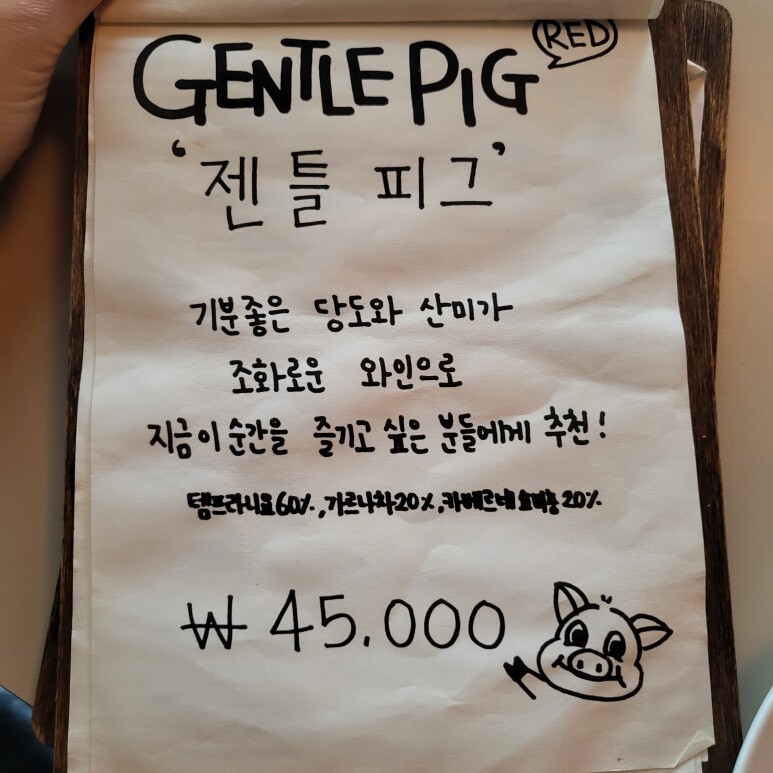 GENTLE PIG RED
'젠틀 피그'
기분좋은 당도와 산미가
조화로운 와인으로
지금이순간을 즐기고 싶은 분들에게 추천!
템프라니요60%, 가르나차20%, 카베르네쇼비뇽20%
₩ 45.000